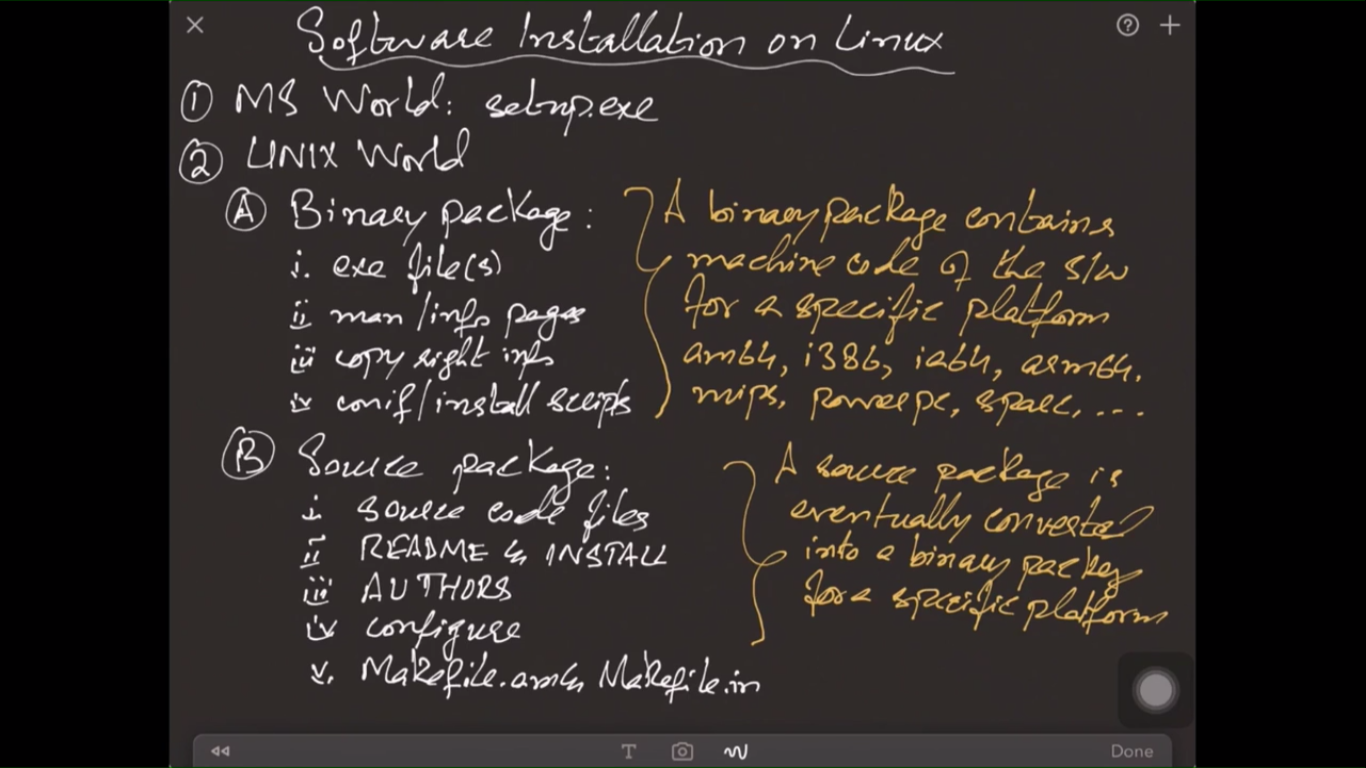 Software Installation on Linux
① MS World: setup.exe
② UNIX World
Ⓐ Binary package:
i. exe file(s)
ii man/info pages
iii copy right info
iv conif/install scripts
A binary package contains
machine code of the s/w
for a specific platform
am64, i386, ia64, arm64,
mips, powerpc, sparc, ...
Ⓑ Source package:
i source code files
ii README & INSTALL
iii AUTHORS
iv configure
v. Makefile.am & Makefile.in
A source package is
eventually converted
into a binary
for a specific platform
T
Done